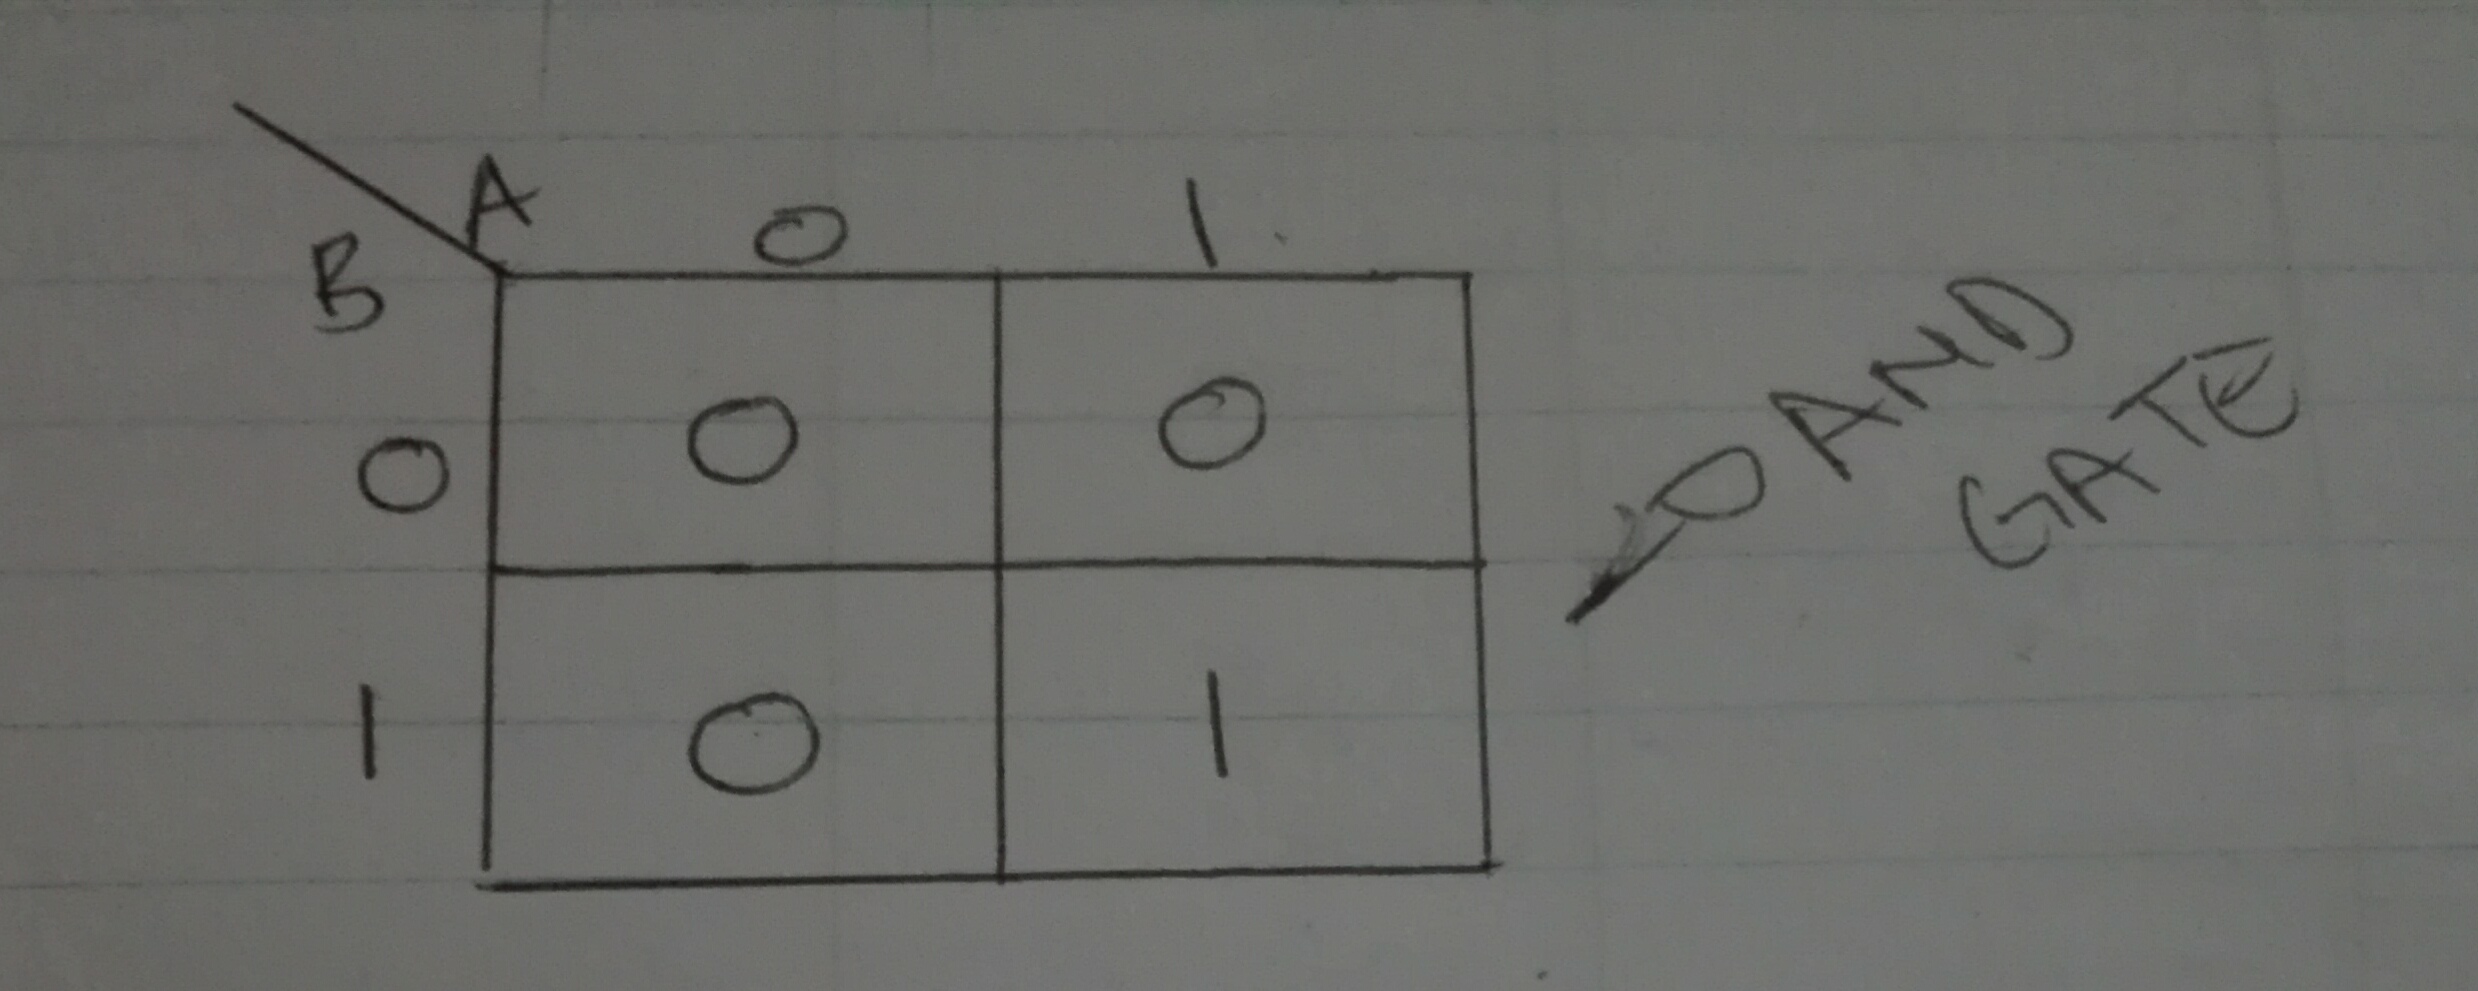 A 0 1
B
0 0 0
1 0 1
AND
GATE